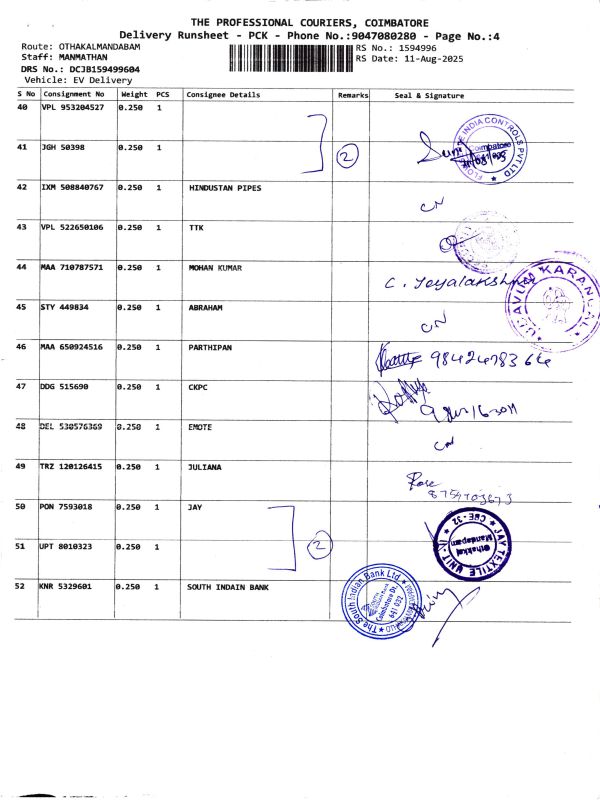 THE PROFESSIONAL COURIERS, COIMBATORE
Delivery Runsheet - PCK - Phone No.:9047080280 - Page No.:4
Route: OTHAKALMANDABAM
RS No.: 1594996
Staff: MANMATHAN
RS Date: 11-Aug-2025
DRS No.: DCJB159499604
Vehicle: EV Delivery
S No Consignment No Weight PCS Consignee Details Remarks Seal & Signature
40 VPL 953204527 0.250 1
41 JGH 50398 0.250 1 2
INDIA CONTROLS PVT LTD
Coimbatore
42 IXM 508840767 0.250 1 HINDUSTAN PIPES CN
43 VPL 522650106 0.250 1 TTK
44 MAA 710787571 0.250 1 MOHAN KUMAR C. Jeyalakshmi
45 STY 449834 0.250 1 ABRAHAM CN
46 MAA 650924516 0.250 1 PARTHIPAN
47 DDG 515690 0.250 1 CKPC
48 DEL 530576369 0.250 1 EMOTE CN
49 TRZ 120126415 0.250 1 JULIANA Rose
50 PON 7593018 0.250 1 JAY
51 UPT 8010323 0.250 1 2
JAY TEXTILE UNIT
CBE - 32
Othakkal
Mandapam
52 KNR 5329601 0.250 1 SOUTH INDAIN BANK
The South Indian Bank Ltd.
Coimbatore Dt.
641 032